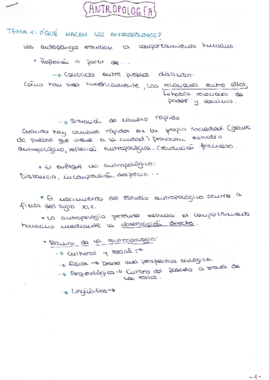 ANTROPOLOGÍA
TEMA 1: ¿QUÉ HACEN LOS ANTROPÓLOGOS?
Los antropólogos estudian el comportamiento humano.
* Reflexión a partir de...
→ Contacto entre pueblos distintos:
Cómo hay sido históricamente, las relaciones entre ellos,
también relaciones de
poder y dominio.
→ Situación de cambio rápido
Cuando hay cambios rápidos en la propia sociedad (gente
de pueblo que viene a la ciudad) provocan estudio
antropológico, reflexión antropológica, (revolución francesa.
* El enfoque no antropológico:
Distancia, incomprensión, desprecio...
* El nacimiento del estudio antropológico ocurre a
finales del siglo XIX.
* La antropología pretende estudiar el comportamiento
humano mediante la observación directa.
* Ramas de la antropología:
→ Cultural y social
→ Física → Desde una perspectiva biológica.
→ Arqueológica → Cultura del pasado a través de
los restos.
→ Lingüística
- 1 -